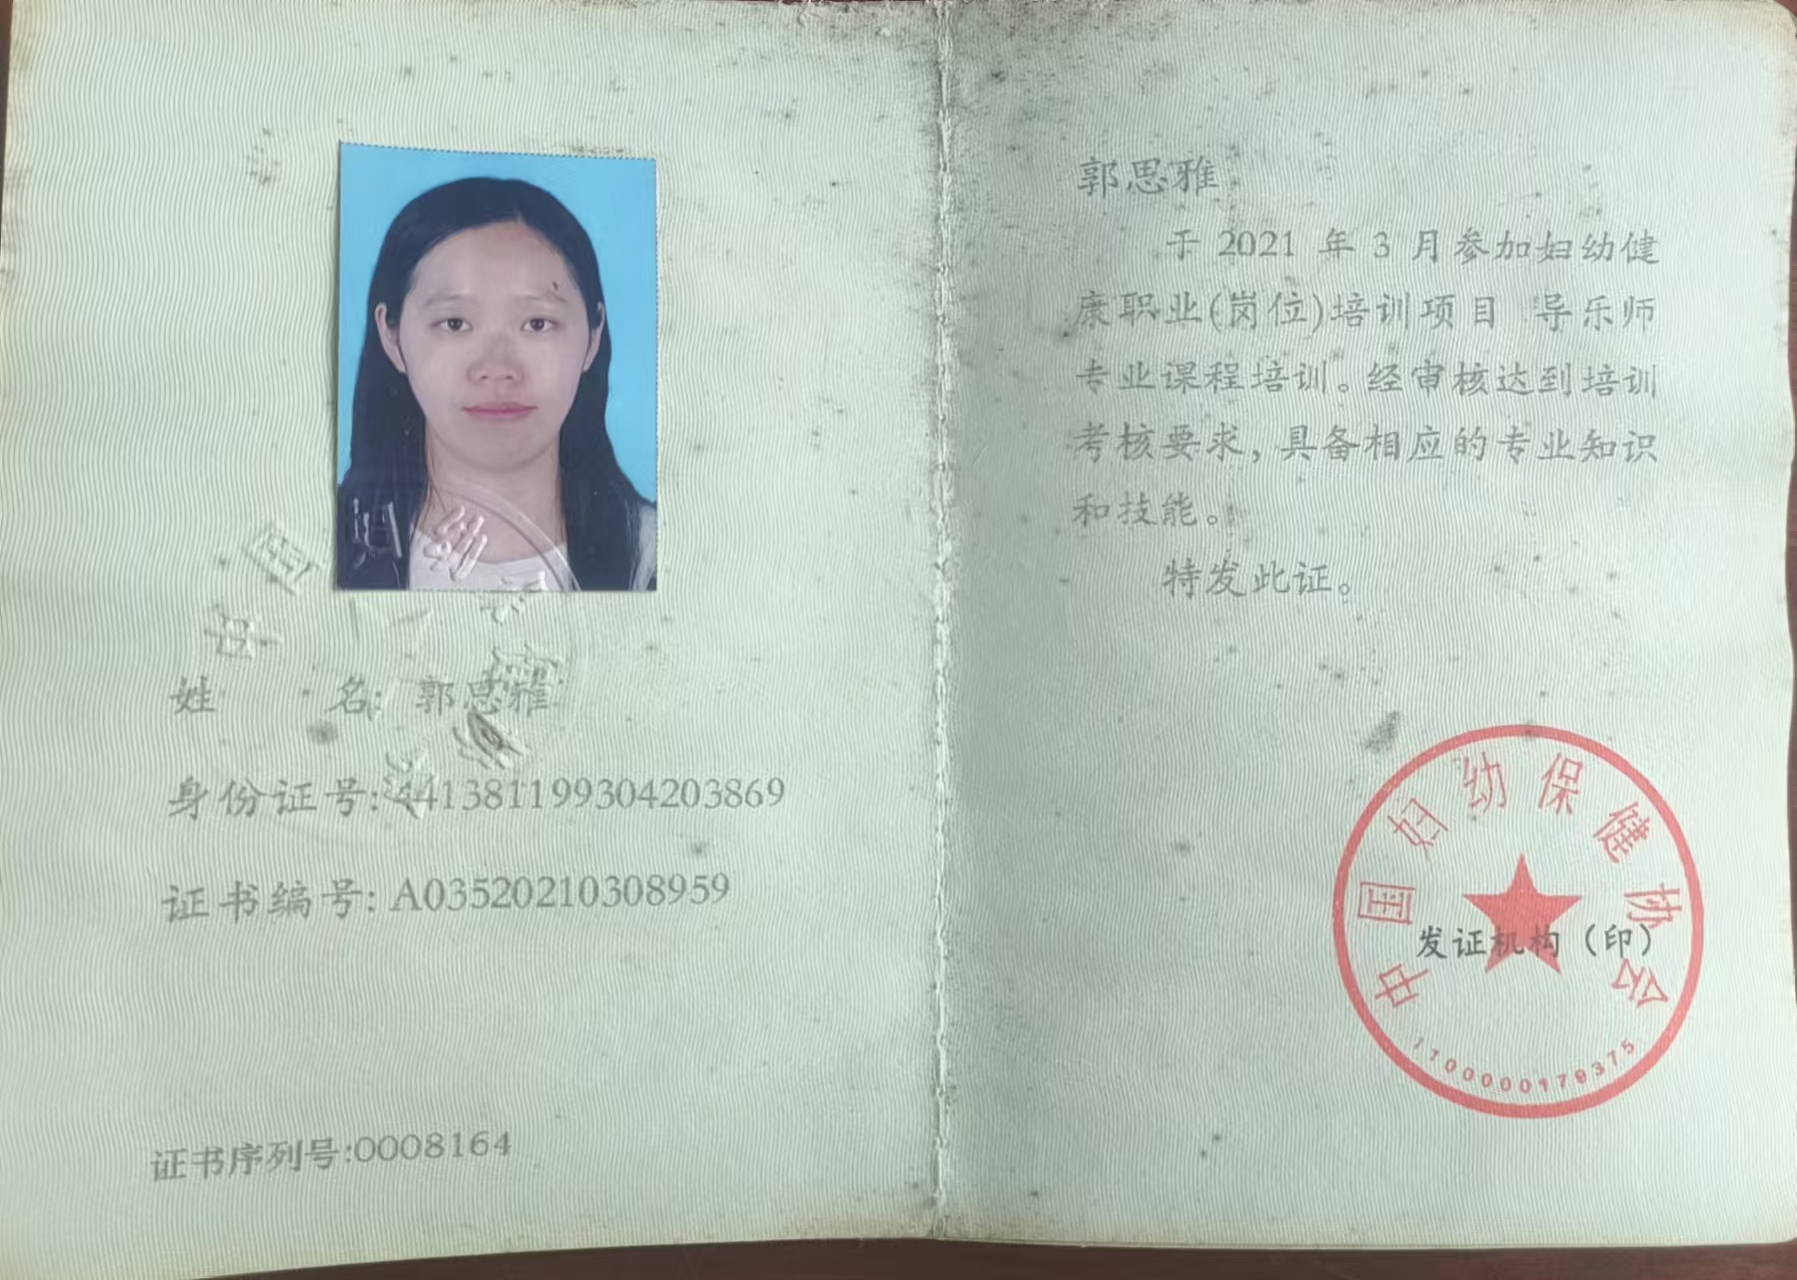 姓 名: 郭思雅
身份证号: 441381199304203869
证书编号: A03520210308959
证书序列号:0008164
郭思雅
于 2021 年 3 月参加妇幼健
康职业(岗位)培训项目 导乐师
专业课程培训。经审核达到培训
考核要求, 具备相应的专业知识
和技能。
特发此证。
中国妇幼保健协会
发证机构（印）
1100000179375
中国妇幼